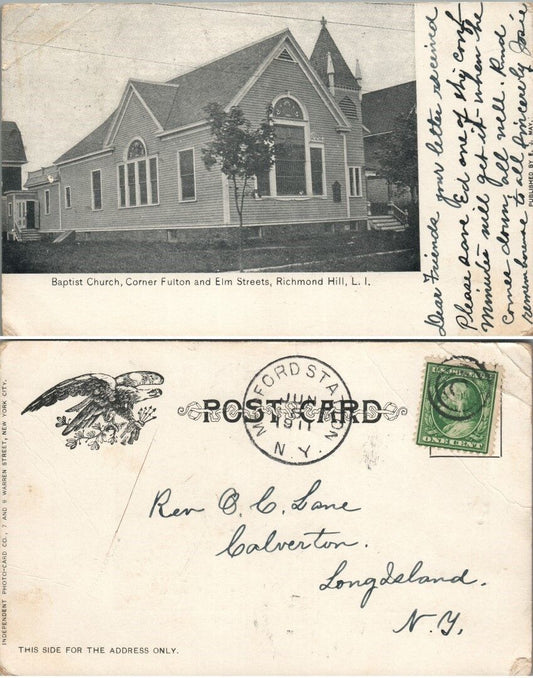 Baptist Church, Corner Fulton and Elm Streets, Richmond Hill, L. I.
Dear Friends your letter received
Please save Ed one of thy comf-
Minutes will get it when he
comes down, all well. Kind
remembrance to all sincerely Josie
PUBLISHED BY E. L. MAY.
POST CARD
MEDFORD STATION
JUN
1911
N. Y.
U.S. POSTAGE
ONE CENT
Rev O. C. Lane
Calverton.
Long Island.
N.Y.
INDEPENDENT PHOTO-CARD CO., 7 AND 9 WARREN STREET, NEW YORK CITY.
THIS SIDE FOR THE ADDRESS ONLY.